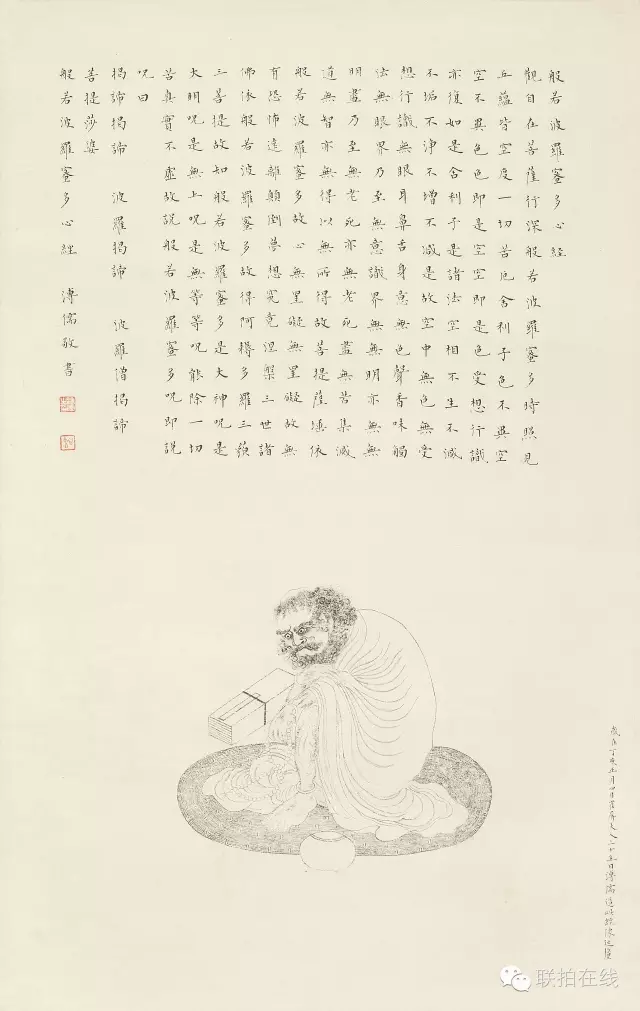 般若波羅蜜多心經
觀自在菩薩行深般若波羅蜜多時照見
五蘊皆空度一切苦厄舍利子色不異空
空不異色色即是空空即是色受想行識
亦復如是舍利子是諸法空相不生不滅
不垢不淨不增不減是故空中無色無受
想行識無眼耳鼻舌身意無色聲香味觸
法無眼界乃至無意識界無無明亦無無
明盡乃至無老死亦無老死盡無苦集滅
道無智亦無得以無所得故菩提薩埵依
般若波羅蜜多故心無罣礙無罣礙故無
有恐怖遠離顛倒夢想究竟涅槃三世諸
佛依般若波羅蜜多故得阿耨多羅三藐
三菩提故知般若波羅蜜多是大神呪是
大明呪是無上呪是無等等呪能除一切
苦真實不虛故說般若波羅蜜多呪即說
呪曰
揭諦揭諦 波羅揭諦 波羅僧揭諦
菩提莎婆
般若波羅蜜多心經 溥儒敬書
歲在丁亥 月四日 夫人二十五日溥儒造
联拍在线